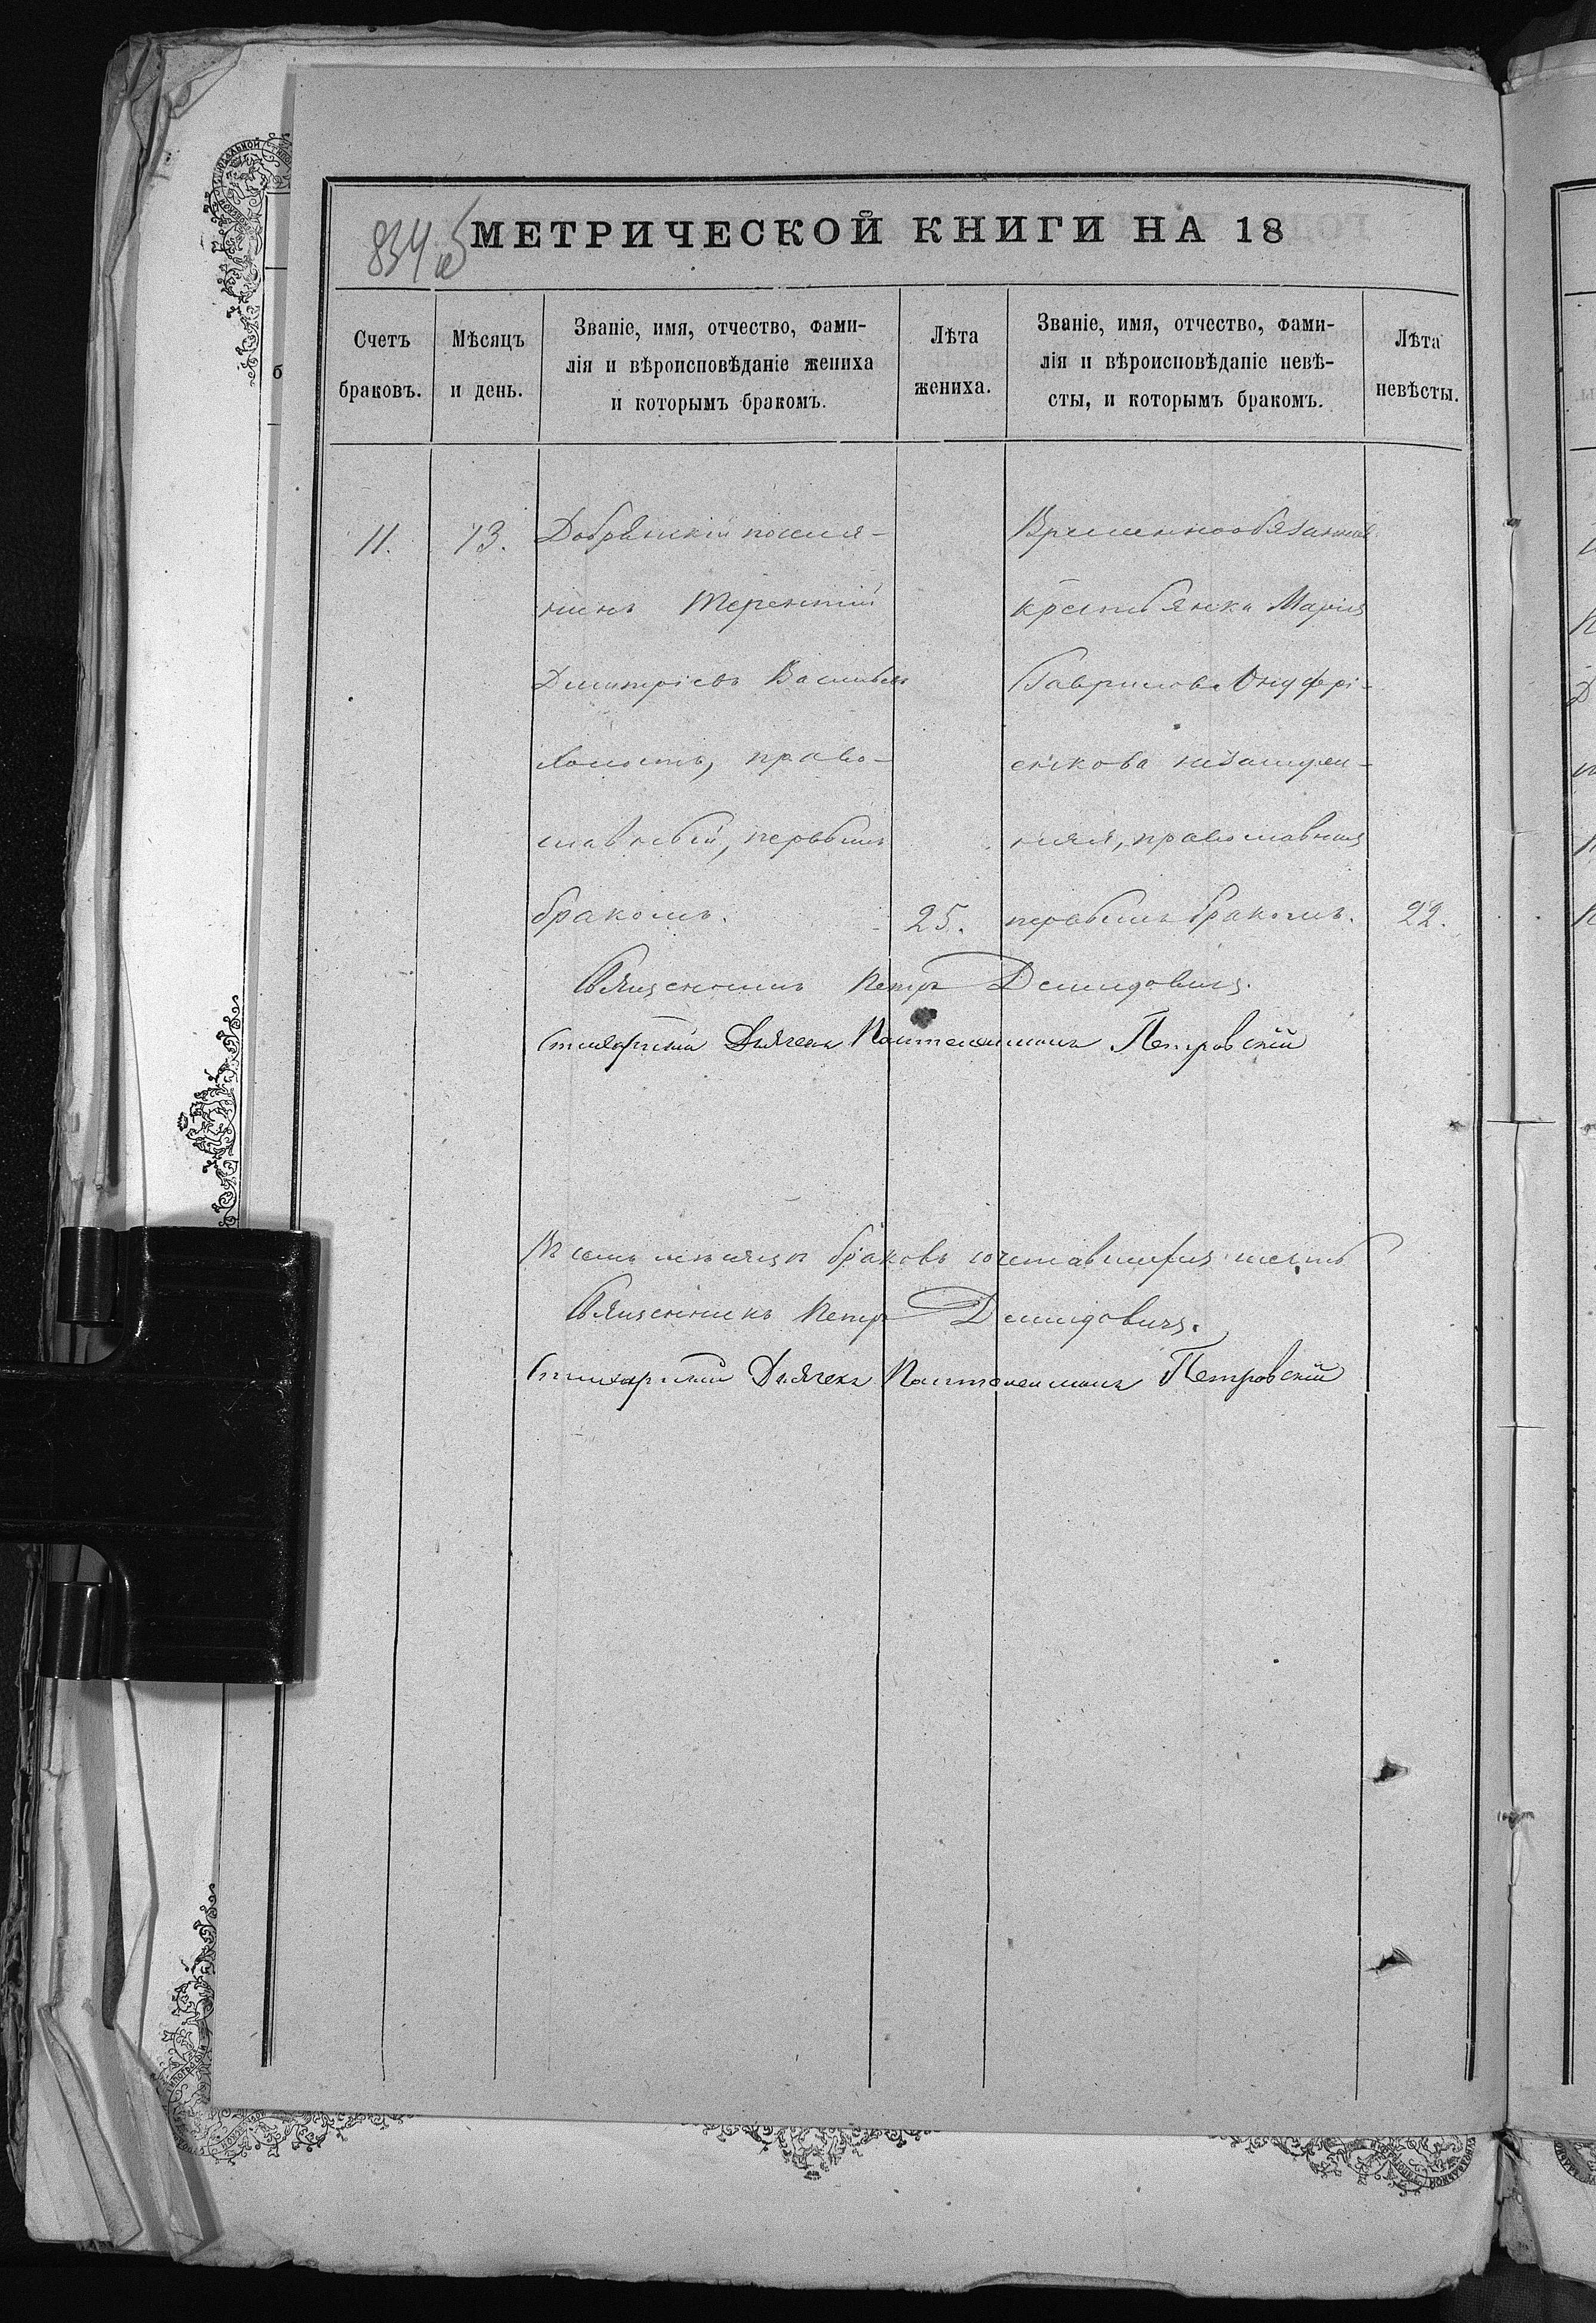 834 об
МЕТРИЧЕСКОЙ КНИГИ НА 18
Счетъ браковъ.
Мѣсяцъ и день.
Званіе, имя, отчество, фами-
лія и вѣроисповѣданіе жениха
и которымъ бракомъ.
Лѣта жениха.
Званіе, имя, отчество, фами-
лія и вѣроисповѣданіе невѣ-
сты, и которымъ бракомъ.
Лѣта невѣсты.
11.
13.
Добрянскій поселя-
нинъ Терентій
Димитріевъ Васильевъ
холостъ, право-
славный, первымъ
бракомъ.
25.
Временнообязанная
крестьянка Марія
Гаврилова Онуфрі-
енкова незамуж-
няя, православная
первымъ бракомъ.
22.
Священникъ Петръ Демидовичъ.
Стихарный Дьячекъ Пантелеимонъ Петровскій
Въ семъ мѣсяцѣ браковъ сочетавшихся шесть
Священникъ Петръ Демидовичъ.
Стихарный Дьячекъ Пантелеимонъ Петровскій